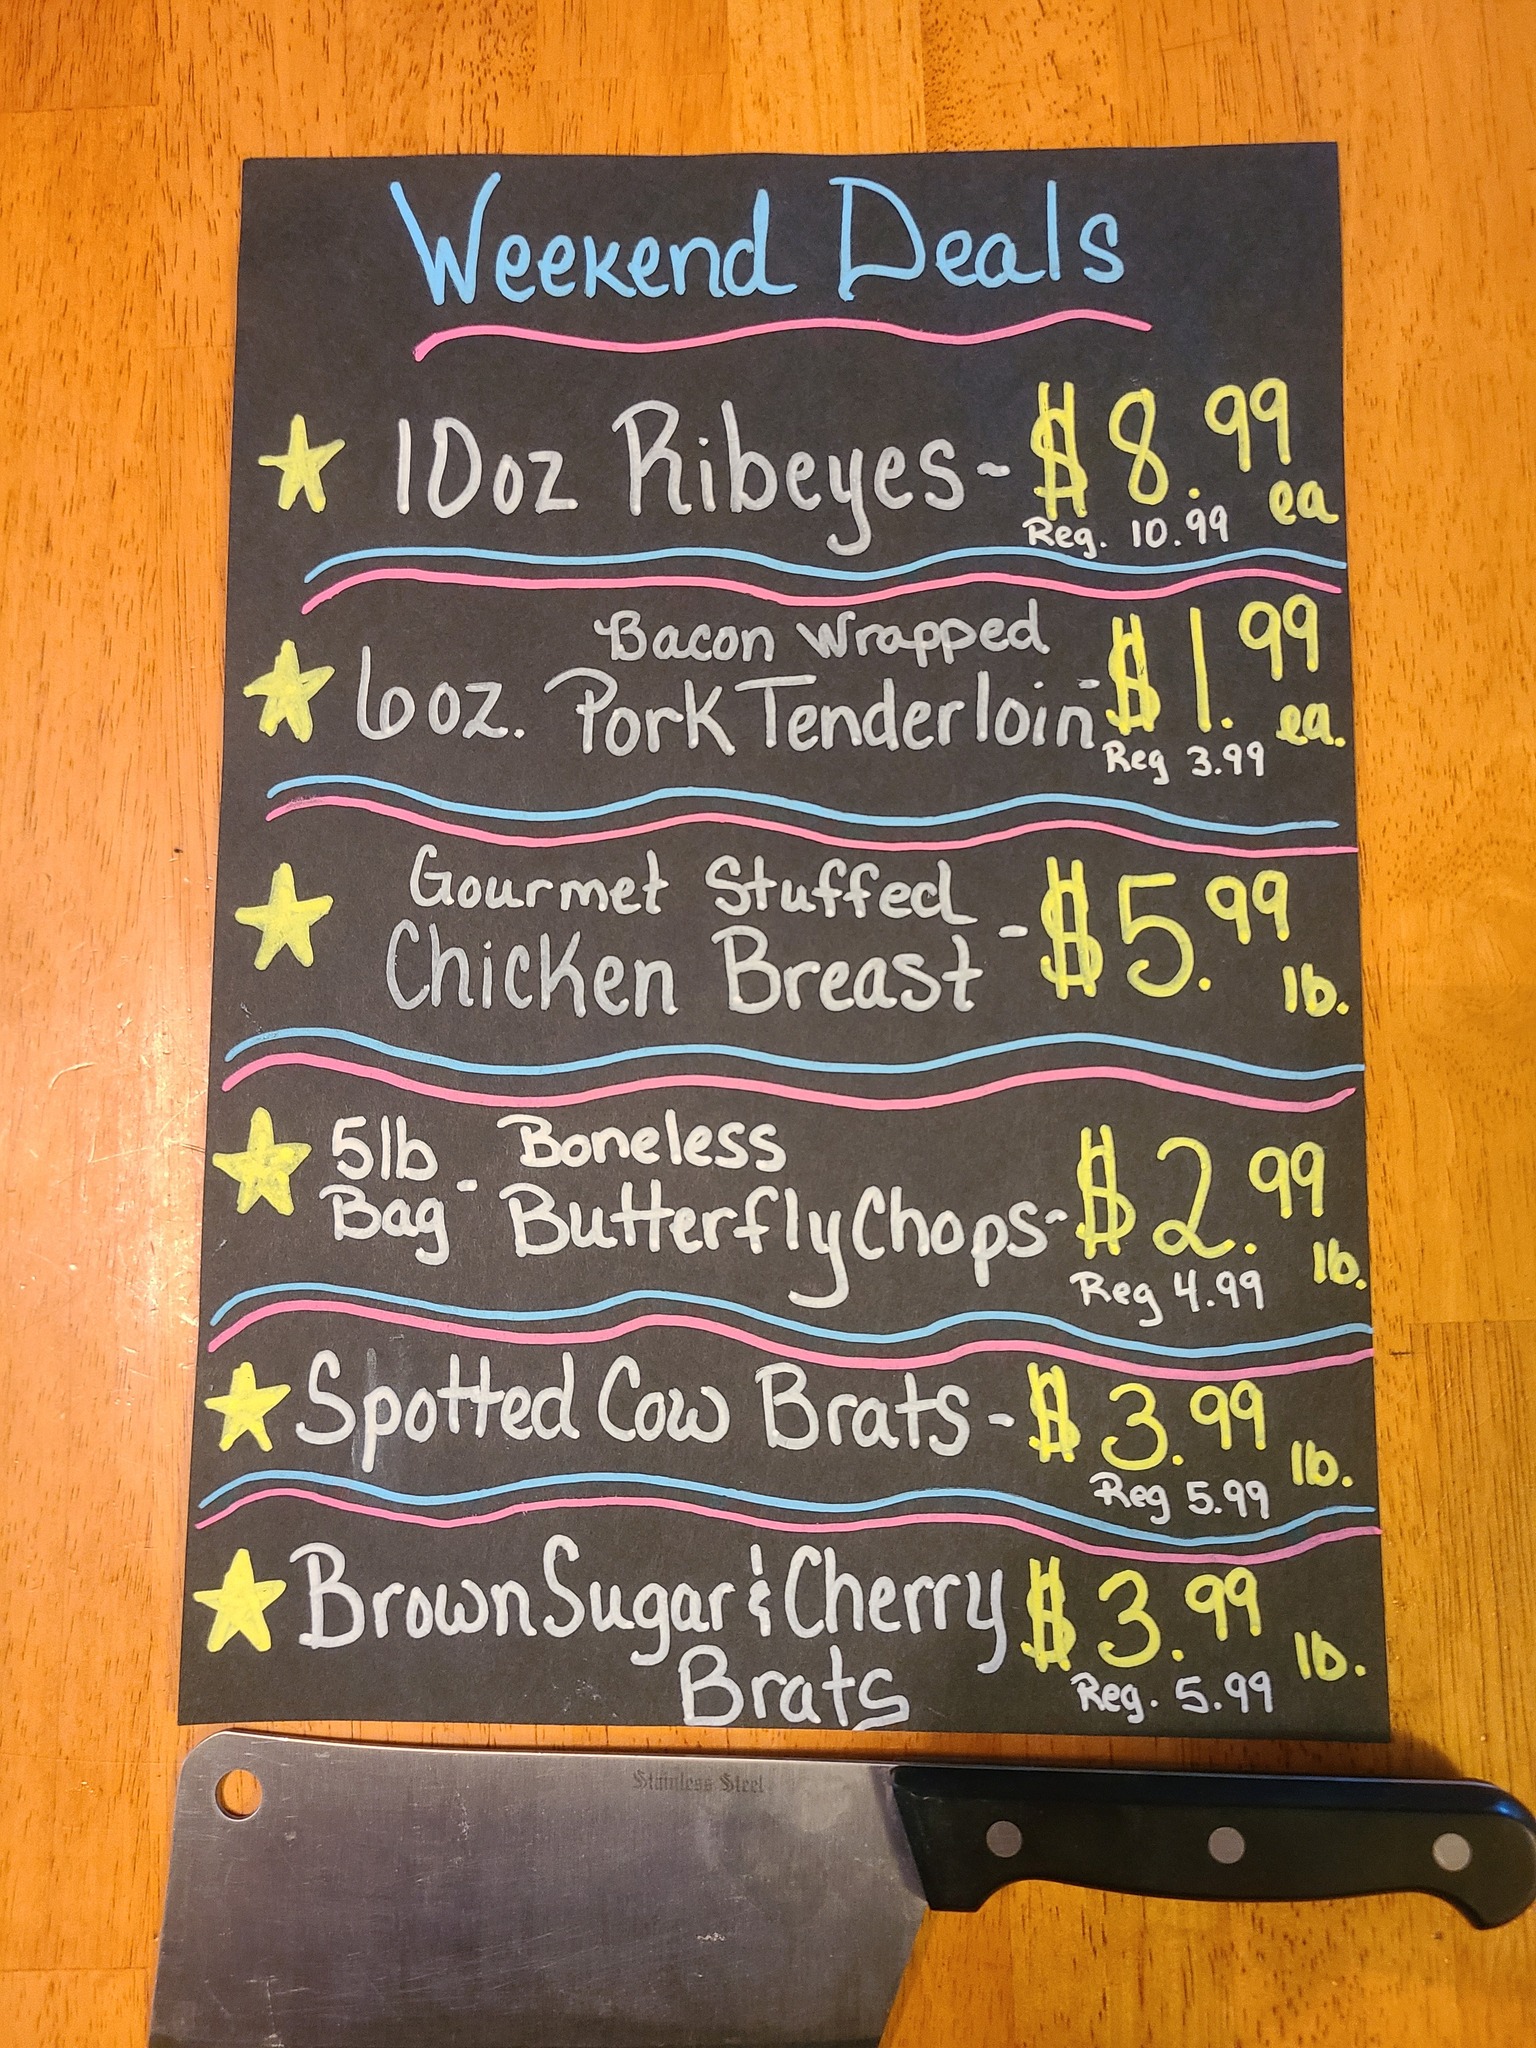 Weekend Deals
10oz Ribeyes - $8.99 ea
Reg. 10.99
Bacon Wrapped
6oz. Pork Tenderloin - $1.99 ea.
Reg 3.99
Gourmet Stuffed
Chicken Breast - $5.99 lb.
5lb Bag - Boneless
Butterfly Chops - $2.99 lb.
Reg 4.99
Spotted Cow Brats - $3.99 lb.
Reg 5.99
Brown Sugar & Cherry $3.99 lb.
Brats Reg. 5.99
Stainless Steel